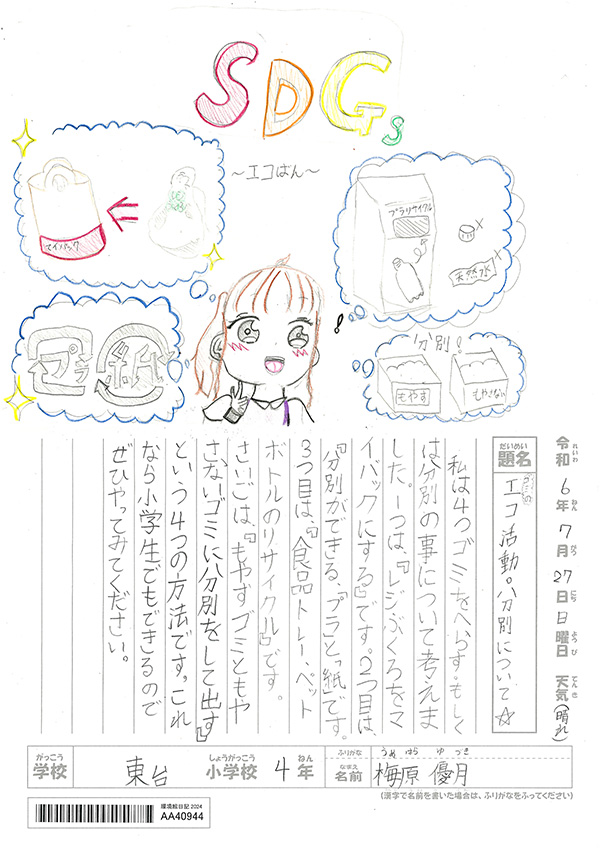 SDGs
～エコばん～
マイバック
プラリサイクル
天然水
プラ
紙
分別！
もやす
もやさない
令和6年7月27日日曜日 天気(晴れ)
れいわ ねん がつ にち ようび てんき
だいめい
題名
エコ活動。分別について☆
ゴミの
私は4つゴミをへらす。もしく
は分別の事について考えま
した。一つは、『レジぶくろをマ
イバックにする』です。2つ目は、
『分別ができる、「プラ」と「紙」です。
3つ目は、『食品トレー、ペット
ボトルのリサイクル』です。
さいごは、『もやすゴミともや
さないゴミに分別をして出す』
という4つの方法です。これ
なら小学生でもできるので
ぜひやってみてください。
がっこう
学校
東台
しょうがっこう
小学校
4
ねん
年
ふりがな
うめ はら ゆ づき
なまえ
名前
梅原 優月
(漢字で名前を書いた場合は、ふりがなをふってください)
環境絵日記 2024
AA40944